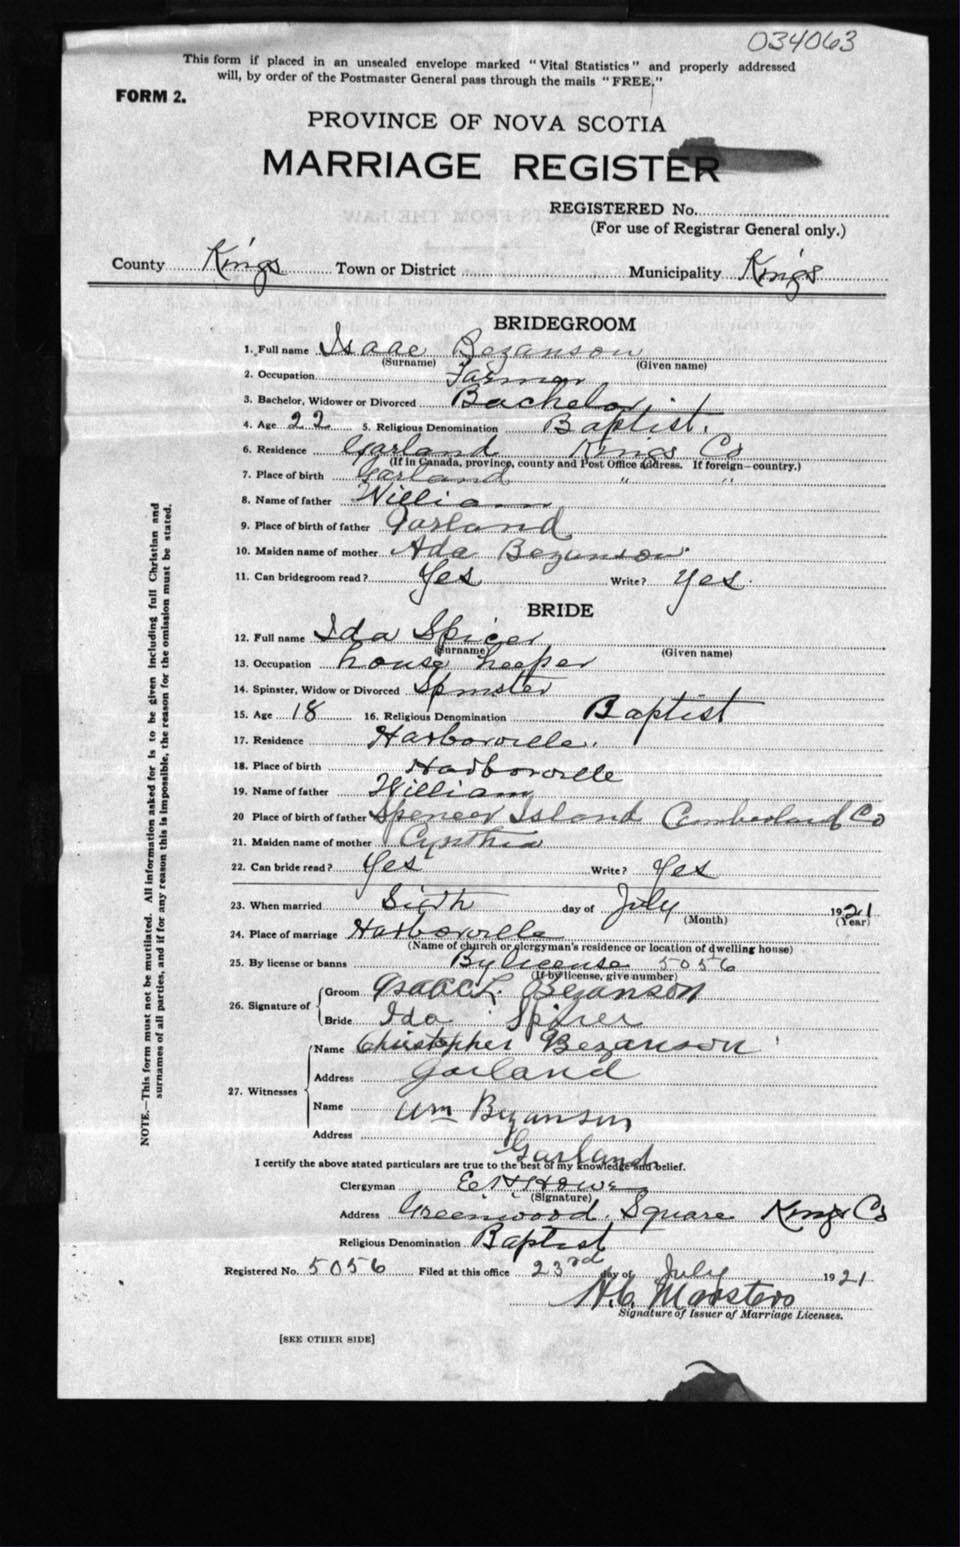 034063
This form if placed in an unsealed envelope marked "Vital Statistics" and properly addressed
will, by order of the Postmaster General pass through the mails "FREE."
FORM 2.
PROVINCE OF NOVA SCOTIA
MARRIAGE REGISTER
REGISTERED No.
(For use of Registrar General only.)
County Kings Town or District Municipality Kings
BRIDEGROOM
1. Full name Isaac Bezanson
(Surname) (Given name)
2. Occupation Farmer
3. Bachelor, Widower or Divorced Bachelor
4. Age 22 5. Religious Denomination Baptist.
6. Residence Garland Kings Co
(If in Canada, province, county and Post Office address. If foreign—country.)
7. Place of birth Garland " "
8. Name of father William
9. Place of birth of father Garland
10. Maiden name of mother Ada Bezanson
11. Can bridegroom read? Yes Write? Yes.
BRIDE
12. Full name Ida Spicer
(Surname) (Given name)
13. Occupation house keeper
14. Spinster, Widow or Divorced Spinster
15. Age 18 16. Religious Denomination Baptist
17. Residence Harborville.
18. Place of birth Harborville
19. Name of father William
20 Place of birth of father Spencer Island Cumberland Co
21. Maiden name of mother Cynthia
22. Can bride read? Yes Write? Yes
23. When married Sixth day of July 1921
(Month) (Year)
24. Place of marriage Harborville
(Name of church or clergyman's residence or location of dwelling house)
25. By license or banns By license 5056
(If by license, give number)
26. Signature of Groom Isaac L. Bezanson
Bride Ida Spicer
27. Witnesses
Name Christopher Bezanson
Address Garland
Name Wm Bezanson
Address Garland
I certify the above stated particulars are true to the best of my knowledge and belief.
Clergyman E H Howe
(Signature)
Address Greenwood Square Kings Co
Religious Denomination Baptist
Registered No. 5056 Filed at this office 23rd day of July 1921
H.C. Marsters
Signature of Issuer of Marriage Licenses.
[SEE OTHER SIDE]
NOTE.—This form must not be mutilated. All information asked for is to be given including full Christian and
surnames of all parties, and if for any reason this is impossible, the reason for the omission must be stated.